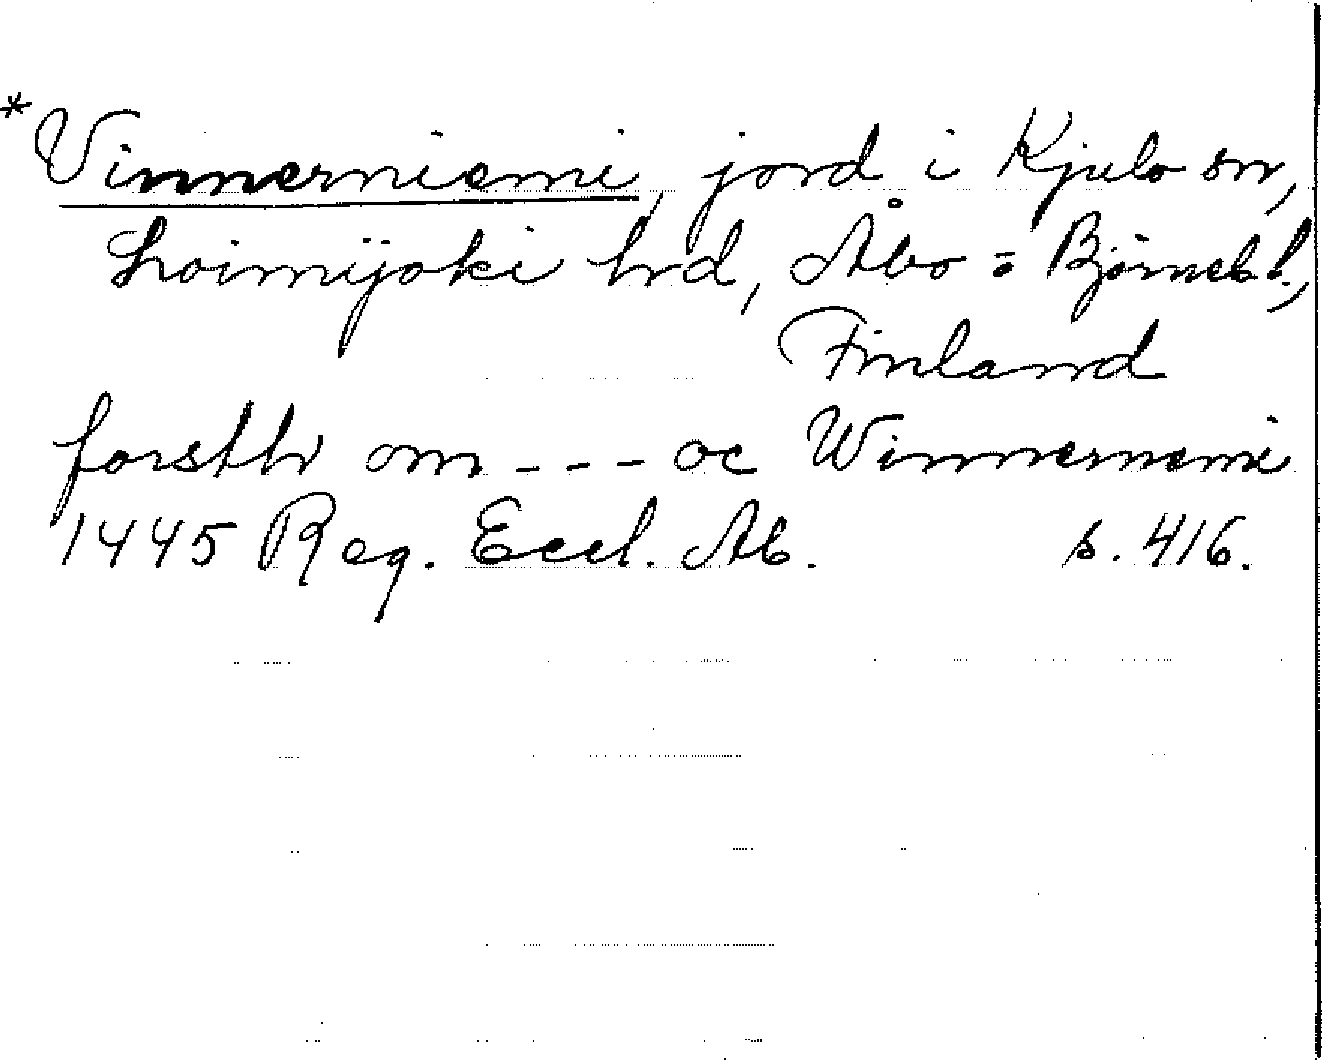 *Vinnerniemi, jord i Kjulo sn,
Loimijoki hrd, Åbo = Björnebl.,
Finland
forsthr om --- oc Winnernemi
1445 Reg. Eccl. Ab. s. 416.